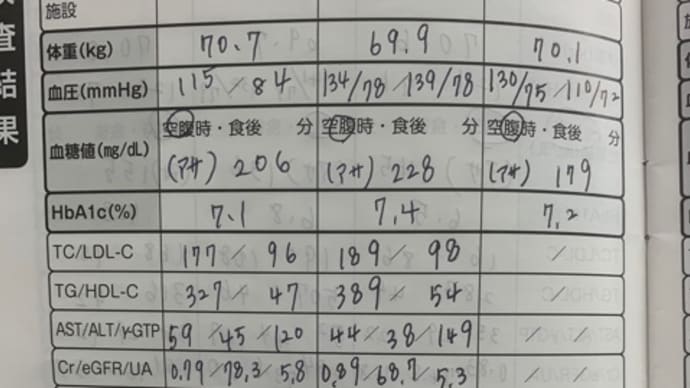 査結果
施設
体重(kg) 70.7 69.9 70.1
血圧(mmHg) 115/84 134/78/139/78 130/75/110/72
血糖値(mg/dL) 空腹時・食後 分 空腹時・食後 分 空腹時・食後 分
(アサ) 206 (アサ) 228 (アサ) 179
HbA1c(%) 7.1 7.4 7.2
TC/LDL-C 177/96 189/98 /
TG/HDL-C 327/47 389/54 /
AST/ALT/γ-GTP 59/45/120 44/38/149 / /
Cr/eGFR/UA 0.79/78.3/5.8 0.89/68.7/5.3 / /